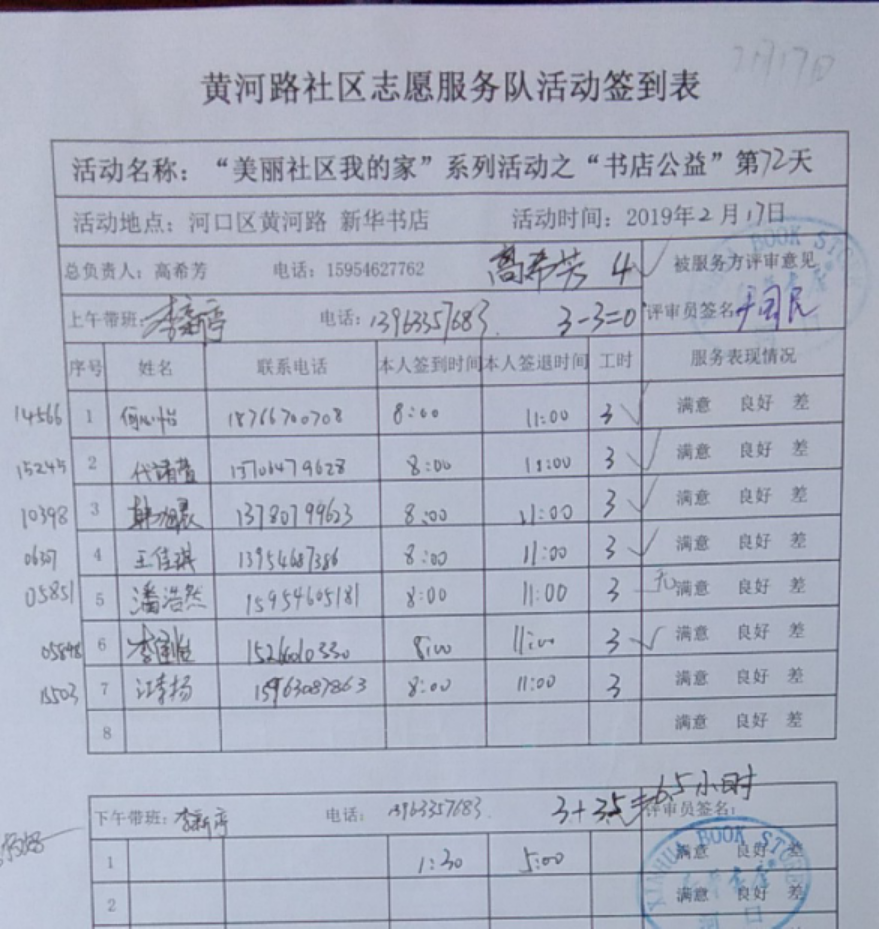 2月17日
黄河路社区志愿服务队活动签到表
活动名称：“美丽社区我的家”系列活动之“书店公益”第72天
活动地点：河口区黄河路 新华书店 活动时间：2019年2月17日
总负责人：高希芳 电话：15954627762 高希芳 4√ 被服务方评审意见
上午带班：李新亭 电话：13963357683 3-3=0 评审员签名
序号 姓名 联系电话 本人签到时间 本人签退时间 工时 服务表现情况
14566 1 何心怡 18766700708 8:00 11:00 3√ 满意 良好 差
15245 2 13706479628 8:00 11:00 3√ 满意 良好 差
10398 3 13780799623 8:00 11:00 3√ 满意 良好 差
0637 4 王佳琪 13954687386 8:00 11:00 3√ 满意 良好 差
05851 5 潘浩然 15954605181 8:00 11:00 3 无 满意 良好 差
05848 6 8:00 11:00 3√ 满意 良好 差
7 江李扬 15963087863 8:00 11:00 3 满意 良好 差
8 满意 良好 差
下午带班：李新亭 电话：13963357683 3+3.5=6.5小时 评审员签名：
1 1:30 5:00 满意 良好 差
2 满意 良好 差
XINHUA BOOK STORE
河口